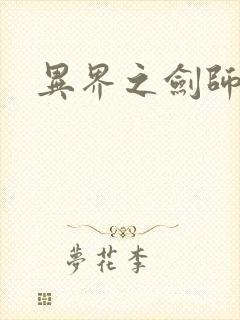 異界之劍師
夢花李